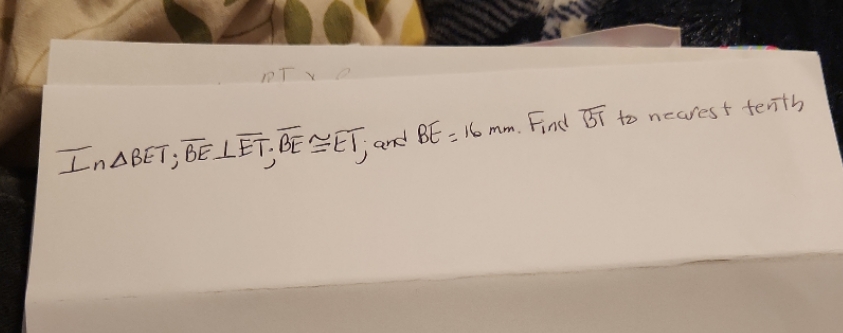 In △BET; B̅E̅ ⊥ E̅T̅; B̅E̅ ≅ E̅T̅; and BE = 16 mm. Find B̅T̅ to nearest tenth